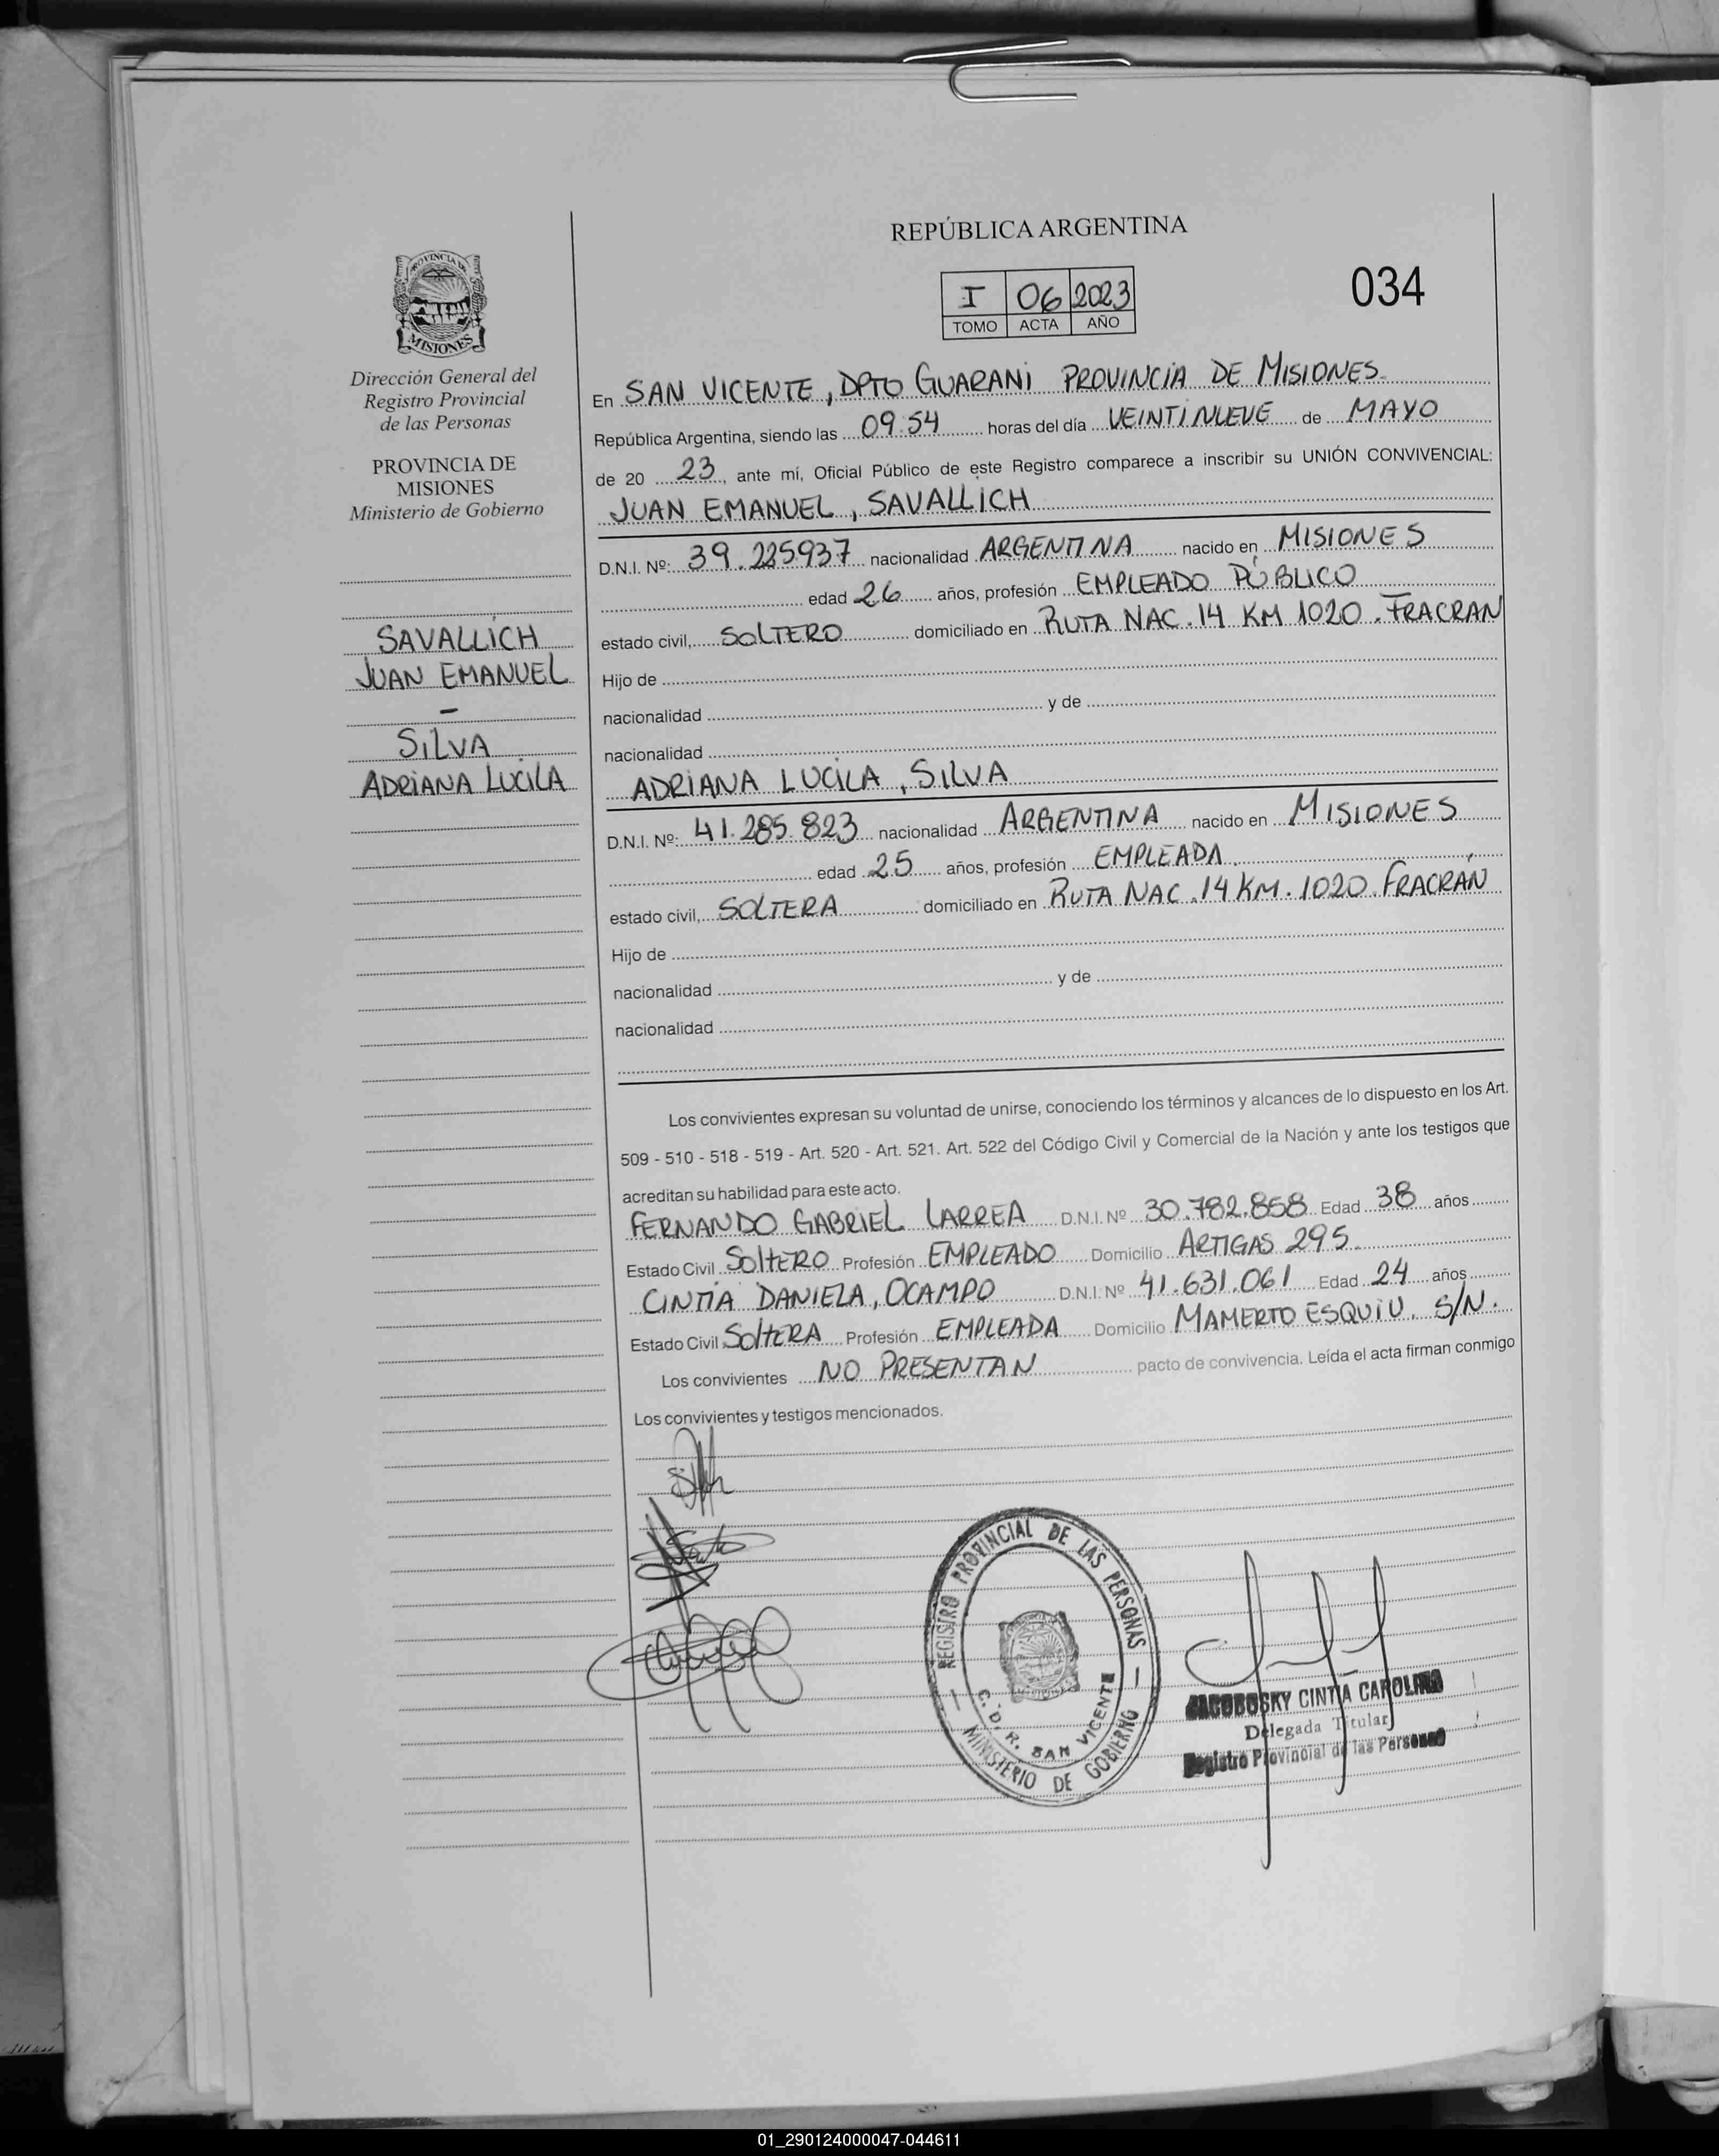 REPÚBLICA ARGENTINA
I 06 2023
TOMO ACTA AÑO
034
PROVINCIA DE
MISIONES
Dirección General del
Registro Provincial
de las Personas
PROVINCIA DE
MISIONES
Ministerio de Gobierno
SAVALLICH
JUAN EMANUEL
-
SILVA
ADRIANA LUCILA
En SAN VICENTE, DPTO GUARANI PROVINCIA DE MISIONES
República Argentina, siendo las 09:54 horas del día VEINTINUEVE de MAYO
de 20 23, ante mí, Oficial Público de este Registro comparece a inscribir su UNIÓN CONVIVENCIAL:
JUAN EMANUEL, SAVALLICH
D.N.I. Nº: 39.225937 nacionalidad ARGENTINA nacido en MISIONES
edad 26 años, profesión EMPLEADO PÚBLICO
estado civil, SOLTERO domiciliado en RUTA NAC. 14 KM 1020. FRACRAN
Hijo de
nacionalidad y de
nacionalidad
ADRIANA LUCILA, SILVA
D.N.I. Nº: 41.285.823 nacionalidad ARGENTINA nacido en MISIONES
edad 25 años, profesión EMPLEADA
estado civil, SOLTERA domiciliado en RUTA NAC. 14 KM. 1020. FRACRÁN
Hijo de
nacionalidad y de
nacionalidad
Los convivientes expresan su voluntad de unirse, conociendo los términos y alcances de lo dispuesto en los Art.
509 - 510 - 518 - 519 - Art. 520 - Art. 521. Art. 522 del Código Civil y Comercial de la Nación y ante los testigos que
acreditan su habilidad para este acto.
FERNANDO GABRIEL LARREA D.N.I. Nº 30.782.858 Edad 38 años
Estado Civil SOLTERO Profesión EMPLEADO Domicilio ARTIGAS 295.
CINTIA DANIELA, OCAMPO D.N.I. Nº 41.631.061 Edad 24 años
Estado Civil SOLTERA Profesión EMPLEADA Domicilio MAMERTO ESQUIU. S/N.
Los convivientes NO PRESENTAN pacto de convivencia. Leída el acta firman conmigo
Los convivientes y testigos mencionados.
REGISTRO PROVINCIAL DE LAS PERSONAS
C. D. R. SAN VICENTE
MINISTERIO DE GOBIERNO
JACOBOSKY CINTIA CAROLINA
Delegada Titular
Registro Provincial de las Personas
01_290124000047-044611